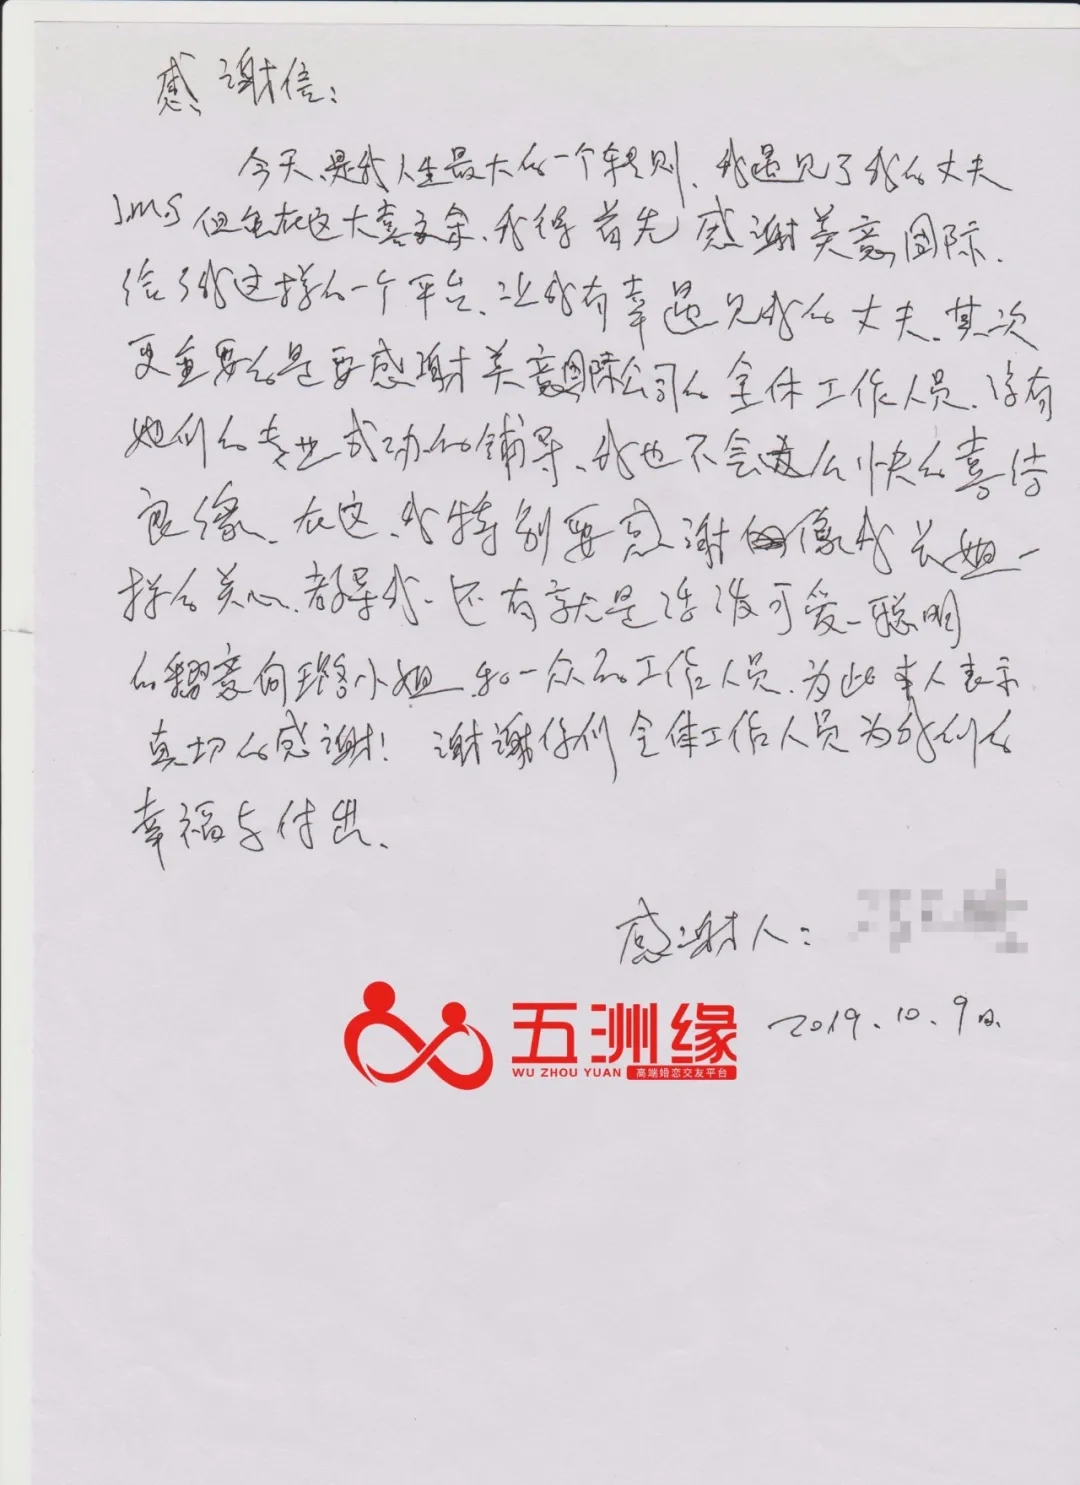 感谢信:
今天、是我人生最大的一个转则、我遇见了我的丈夫
J.M.S 但是在这大喜之余、我得首先感谢美意国际.
给了我这样的一个平台、让我有幸遇见我的丈夫、其次
更重要的是要感谢美意国际公司的全体工作人员、没有
她们的专业成功的辅导、我也不会这么快的喜结
良缘、在这、我特别要感谢像我长姐一
样的关心、督导我、还有就是活泼可爱、聪明
的 向 璐小姐、和一众的工作人员、为此本人表示
真切的感谢! 谢谢你们全体工作人员为我们的
幸福与付出、
感谢人:
五洲缘
WU ZHOU YUAN 高端婚恋交友平台
2019.10.9日.